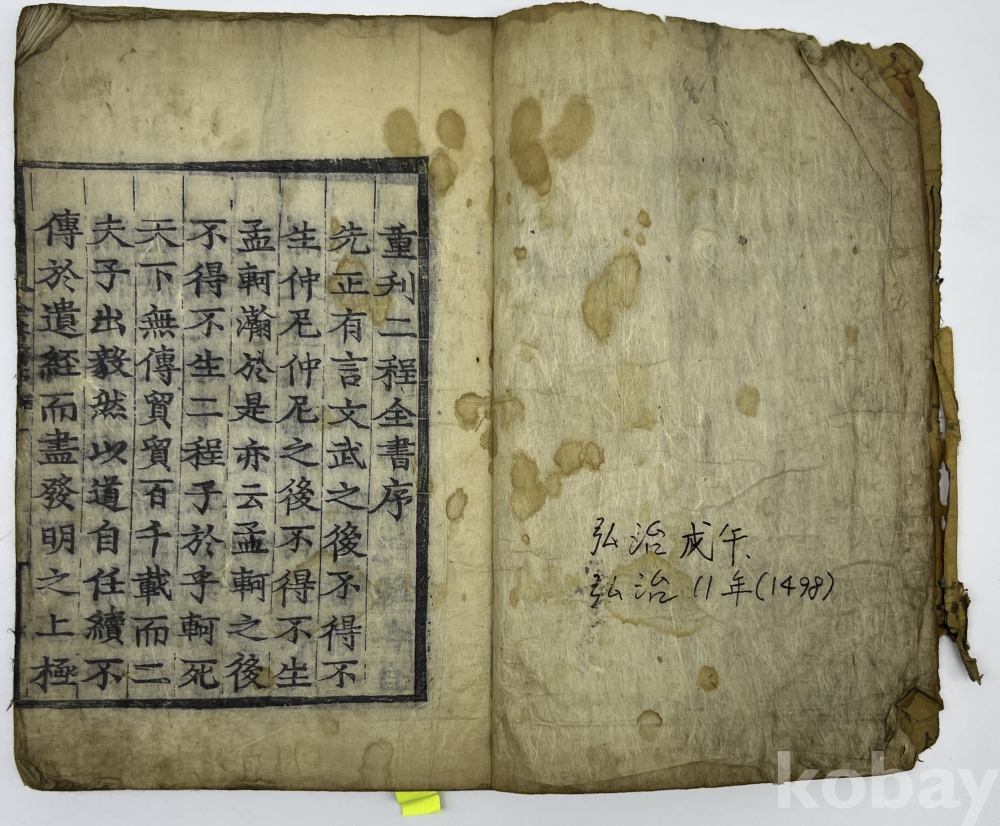 弘治 戊午、
弘治 11年(1498)
重刋二程全書序
先正有言文武之後不得不
生仲尼仲尼之後不得不生
孟軻瀚於是亦云孟軻之後
不得不生二程子於乎軻死
天下無傳貿貿百千載而二
夫子出毅然以道自任續不
傳於遺経而盡發明之上極
kobay